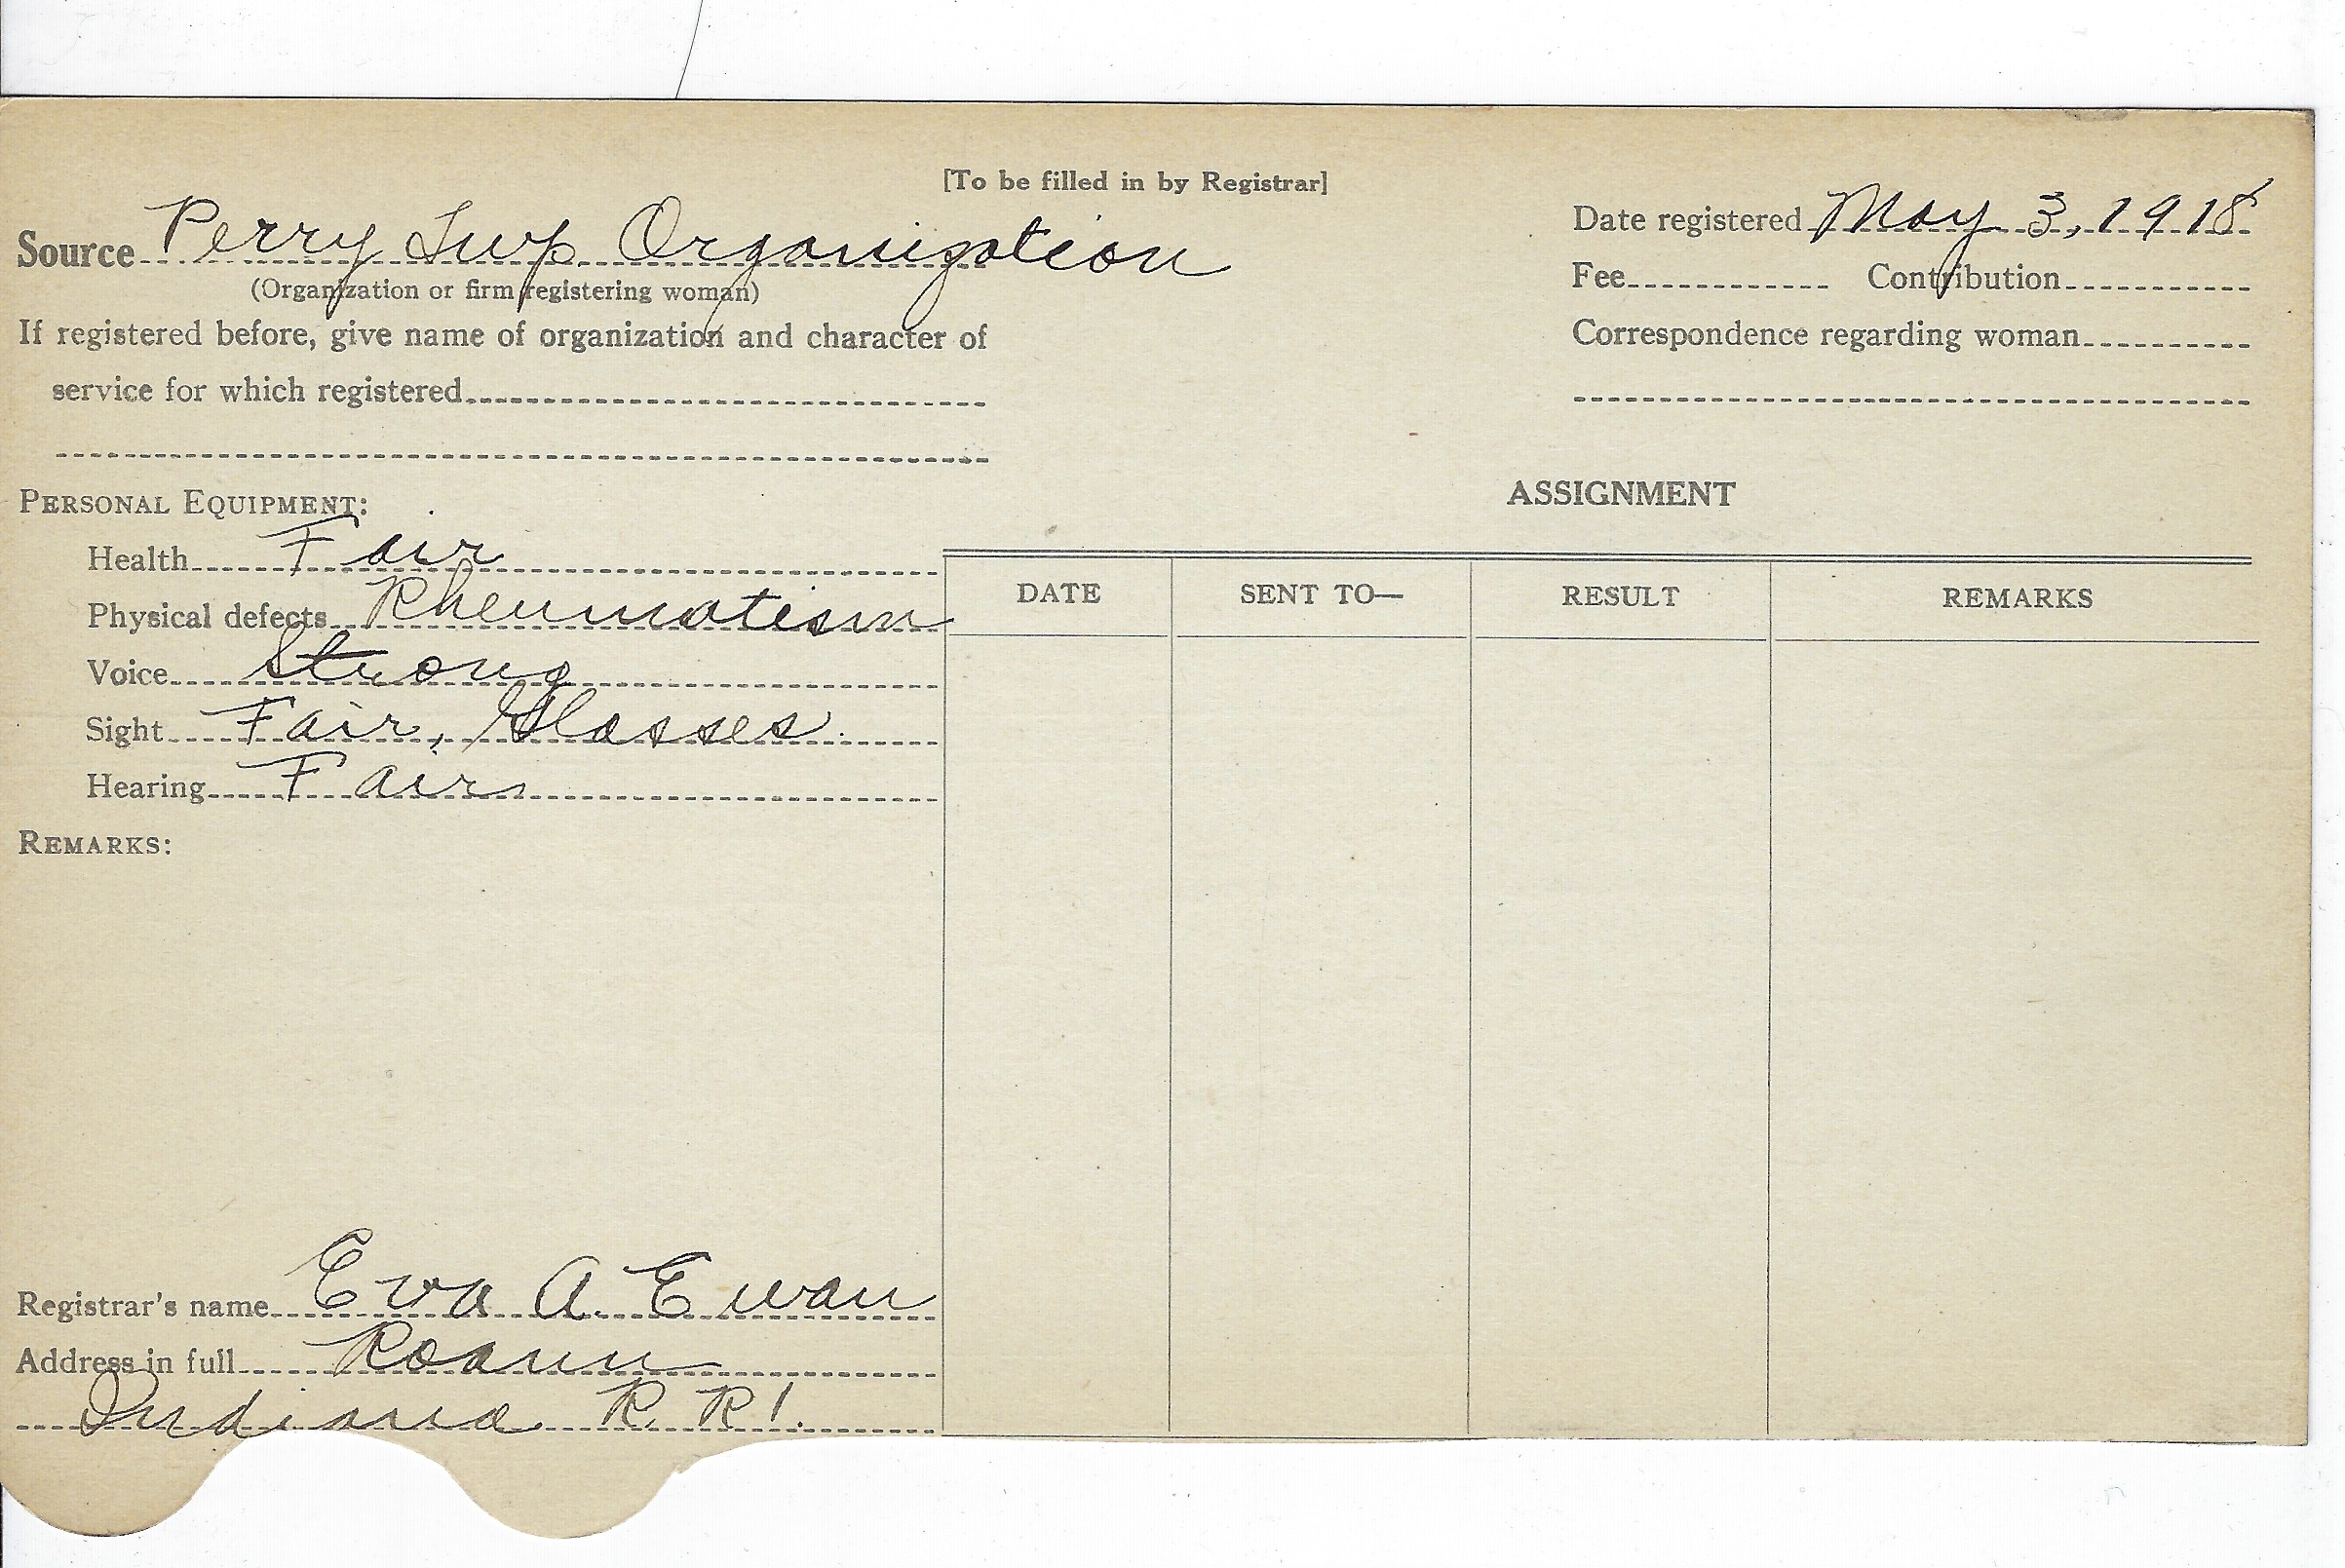 [To be filled in by Registrar]
Source Perry Twp Organization
(Organization or firm registering woman)
If registered before, give name of organization and character of
service for which registered
Date registered May 3, 1918
Fee Contribution
Correspondence regarding woman
PERSONAL EQUIPMENT:
Health Fair
Physical defects Rheumatism
Voice Strong
Sight Fair, Glasses.
Hearing Fair
REMARKS:
Registrar's name Eva A. Ewan
Address in full Roann
Indiana R R 1.
ASSIGNMENT
DATE SENT TO— RESULT REMARKS